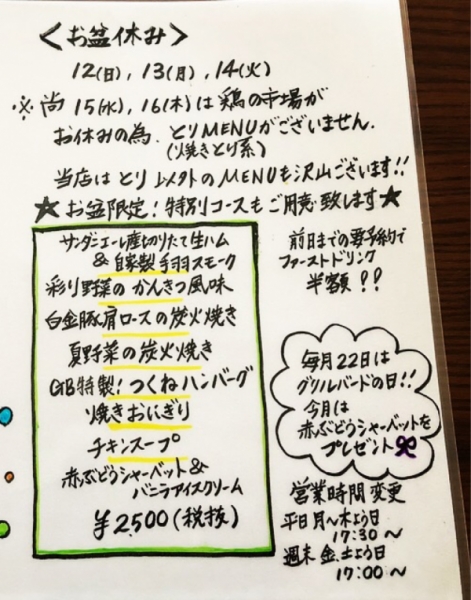 <お盆休み>
12(日), 13(月), 14(火)
※尚 15(水), 16(木)は鶏の市場が
お休みの為、とりMENUがございません.
(焼きとり系)
当店はとり以外のMENUも沢山ございます!!
★お盆限定!特別コースもご用意致します★
サンダニエーレ産切りたて生ハム
& 自家製 手羽スモーク
彩り野菜のかんきつ風味
白金豚肩ロースの炭火焼き
夏野菜の炭火焼き
GB特製!つくねハンバーグ
焼きおにぎり
チキンスープ
赤ぶどうシャーベット&
バニラアイスクリーム
¥2,500(税抜)
前日までの要予約で
ファーストドリンク
半額!?
毎月22日は
グリルバードの日!!
今月は
赤ぶどうシャーベットを
プレゼント
営業時間変更
平日 月〜木よう日
17:30〜
週末 金、土よう日
17:00〜